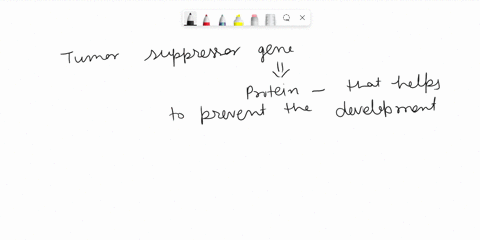 Tumor suppressor gene
⇓
Protein – that helps
to prevent the development